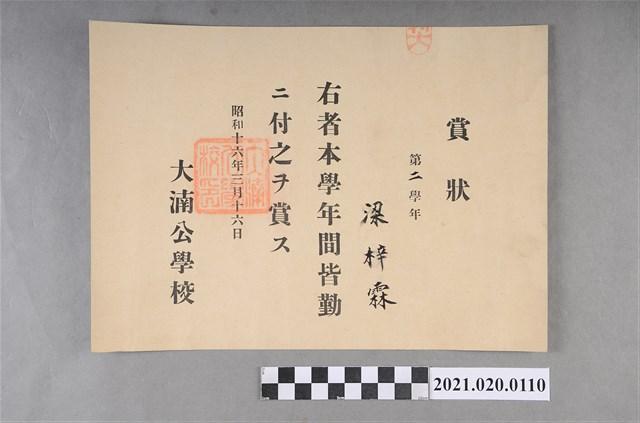 賞狀
第二學年
梁梓霖
右者本學年間皆勤
ニ付之ヲ賞ス
昭和十六年三月十六日
大湳公學校
2021.020.0110